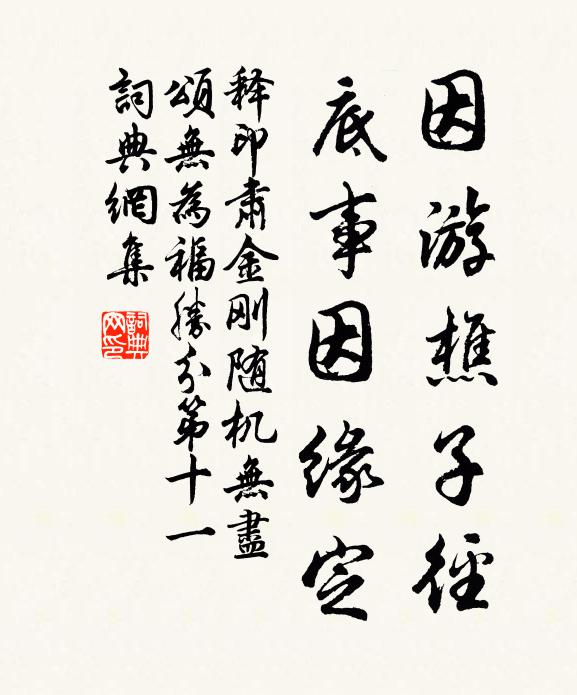 因游樵子徑
底事因緣空
释印肃金刚随机無盡
頌無為福勝分第十一
詞典網集
詞典網印